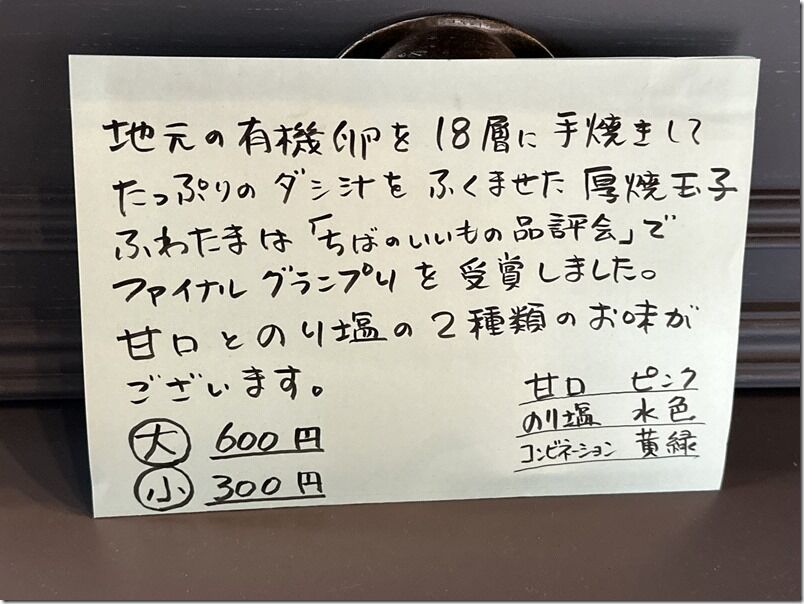 地元の有機卵を18層に手焼きして
たっぷりのダシ汁をふくませた厚焼玉子
ふわたまは「ちばのいいもの品評会」で
ファイナルグランプリを受賞しました。
甘口とのり塩の2種類のお味が
ございます。
大 600円
小 300円
甘口 ピンク
のり塩 水色
コンビネーション 黄緑